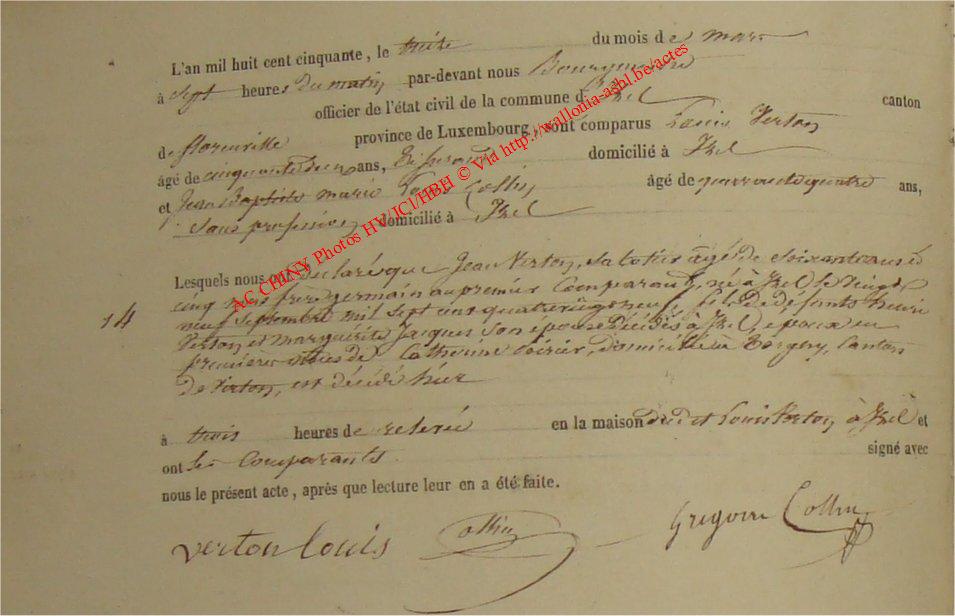 L'an mil huit cent cinquante, le treize du mois de mars
à sept heures du matin par-devant nous Bourgmestre
officier de l'état civil de la commune d'Izel canton
de florenville province de Luxembourg, sont comparus Louis Verton
âgé de cinquante deux ans, Tisserand domicilié à Izel
et Jean Baptiste marie Collin âgé de quarante quatre ans,
Sans profession domicilié à Izel
Lesquels nous ont declarés que Jean Verton, âgé de soixante ans et
cinq mois frère germain au premier Comparant, né à Izel le Vingt
neuf Septembre mil sept cent quatre vingt neuf, fils de défunts henri
Verton et marguérite Jacques son épouse décédés à Izel, epoux en
14
premières de Catherine Poirier, domicilié à Torgny, Canton
de Virton, est décédé hier
à trois heures de relevée en la maison dudit Louis Verton à Izel et
ont les Comparants signé avec
nous le présent acte, après que lecture leur en a été faite.
verton louis Collin Grégoire Collin
AC CHINY Photos HV/JCl/HBH © Via http://wallonia-asbl.be/actes